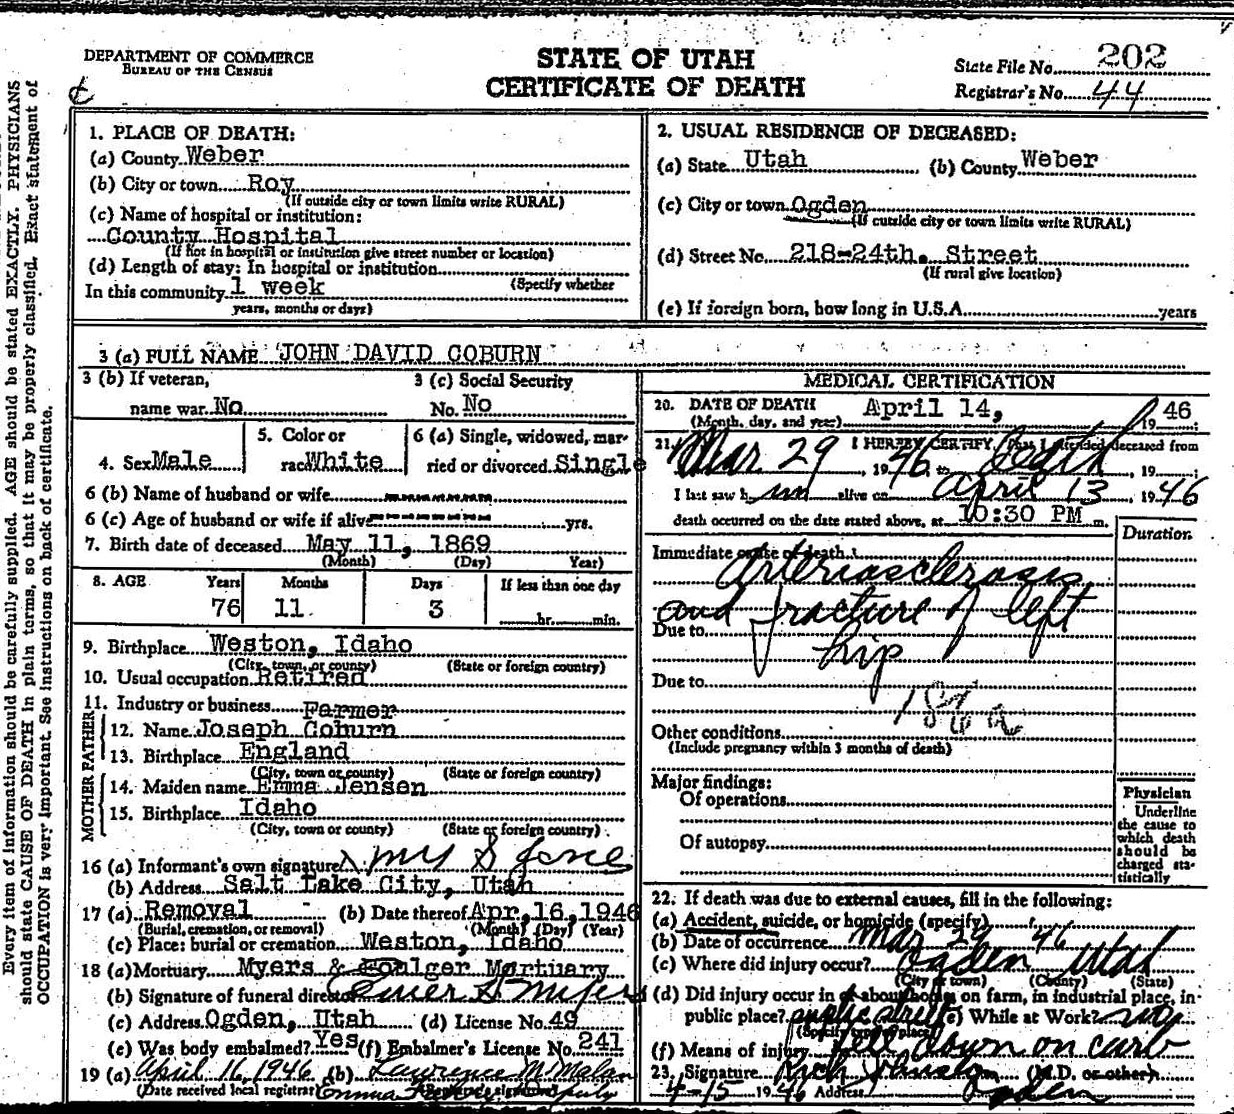 DEPARTMENT OF COMMERCE
BUREAU OF THE CENSUS
STATE OF UTAH
CERTIFICATE OF DEATH
State File No. 202
Registrar's No. 44
Every item of information should be carefully supplied. AGE should be stated EXACTLY. PHYSICIANS
should state CAUSE OF DEATH in plain terms, so that it may be properly classified. Exact statement of
OCCUPATION is very important. See instructions on back of certificate.
1. PLACE OF DEATH:
(a) County Weber
(b) City or town Roy
(If outside city or town limits write RURAL)
(c) Name of hospital or institution:
County Hospital
(If not in hospital or institution give street number or location)
(d) Length of stay: In hospital or institution
(Specify whether
In this community 1 week
years, months or days)
2. USUAL RESIDENCE OF DECEASED:
(a) State Utah (b) County Weber
(c) City or town Ogden
(If outside city or town limits write RURAL)
(d) Street No. 218-24th. Street
(If rural give location)
(e) If foreign born, how long in U.S.A. years
3 (a) FULL NAME JOHN DAVID COBURN
3 (b) If veteran, name war No
3 (c) Social Security No. No
4. Sex Male
5. Color or race White
6 (a) Single, widowed, married or divorced Single
6 (b) Name of husband or wife
6 (c) Age of husband or wife if alive yrs.
7. Birth date of deceased May 11, 1869
(Month) (Day) Year)
8. AGE Years Months Days If less than one day
76 11 3 hr. min.
9. Birthplace Weston, Idaho
(City, town, or county) (State or foreign country)
10. Usual occupation Retired
11. Industry or business Farmer
FATHER
12. Name Joseph Coburn
13. Birthplace England
(City, town or county) (State or foreign country)
MOTHER
14. Maiden name Emma Jensen
15. Birthplace Idaho
(City, town or county) (State or foreign country)
16 (a) Informant's own signature
(b) Address Salt Lake City, Utah
17 (a) Removal (b) Date thereof Apr. 16, 1946
(Burial, cremation, or removal) (Month) (Day) (Year)
(c) Place: burial or cremation Weston, Idaho
18 (a) Mortuary Myers & Foulger Mortuary
(b) Signature of funeral director Myers
(c) Address Ogden, Utah (d) License No. 49
(e) Was body embalmed? Yes (f) Embalmer's License No. 241
19 (a) April 16, 1946 (b) Lawrence M Malan
(Date received local registrar)
MEDICAL CERTIFICATION
20. DATE OF DEATH April 14, 1946
(Month, day, and year)
21. I HEREBY CERTIFY, That I attended deceased from
Mar. 29, 1946 to Death, 19
I last saw him alive on April 13, 1946
death occurred on the date stated above, at 10:30 PM m.
Duration
Immediate cause of death
Arteriosclerosis
and fracture of left
Due to
hip
Due to
Other conditions
(Include pregnancy within 3 months of death)
Major findings:
Of operations
Of autopsy
Physician
Underline
the cause to
which death
should be
charged sta-
tistically
22. If death was due to external causes, fill in the following:
(a) Accident, suicide, or homicide (specify)
(b) Date of occurrence Mar 29 46
(c) Where did injury occur? Ogden Utah
(City or town) (County) (State)
(d) Did injury occur in or about home, on farm, in industrial place, in
public place? public street (e) While at Work? no
(Specify type of place)
(f) Means of injury fell down on curb
23. Signature (M.D. or other)
4-15 1946 Address Ogden